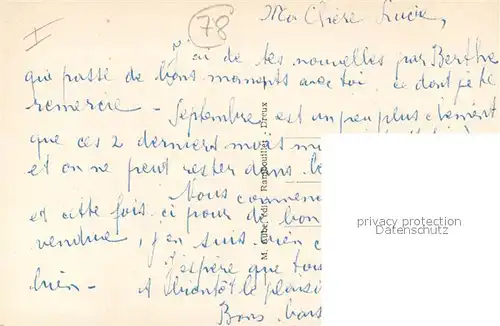 I
78
Ma Chère Lucie,
J'ai de tes nouvelles par Berthe
qui passé de bons moments avec toi ce dont je te
remercie - Septembre est un peu plus clément
que ces 2 derniers mois
et on ne peut rester dans
Nous
et cette fois ci pour de bon
vendue, j'en suis
J'espère que tous
bien - A bientôt le plaisir
Bons
M. Aube, édit., Rambouillet - Dreux
privacy protection
Datenschutz